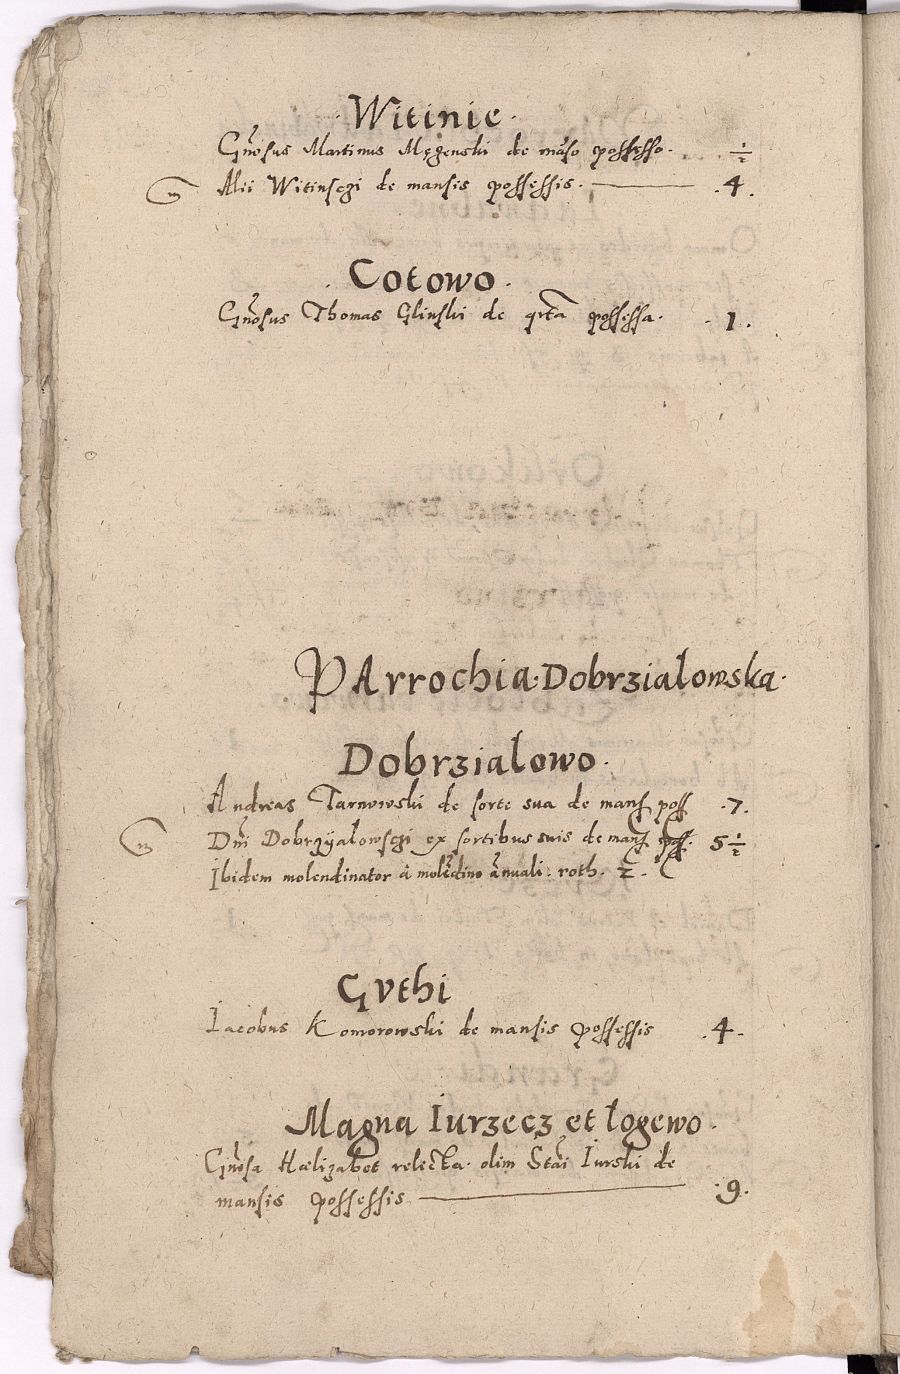 . Witinie .
Gn̄osus Martinus Męgenski de māso possesso . ½
Alii Witinsczi de mansis possessis . — . 4 .
. Cotowo .
Gn̄osus Thomas Glinski de qrta possessa . . 1 .
PArrochia . Dobrzialowska .
Dobrzialowo .
Andreas Tarnowski de sorte sua de mans poss . 7 .
Dn̄i Dobrzyalowsczi ex sortibus suis de mans poss . 5 ½
Ibidem molendinator á molēdino ānuali . roth . 2 .
Gvthi
Iacobus Komorowski de mansis possessis . 4 .
Magna Iurzecz et logewo .
Gn̄osa Hælizabet relecta . olim Stāi Iurski de
mansis possessis — . 9 .